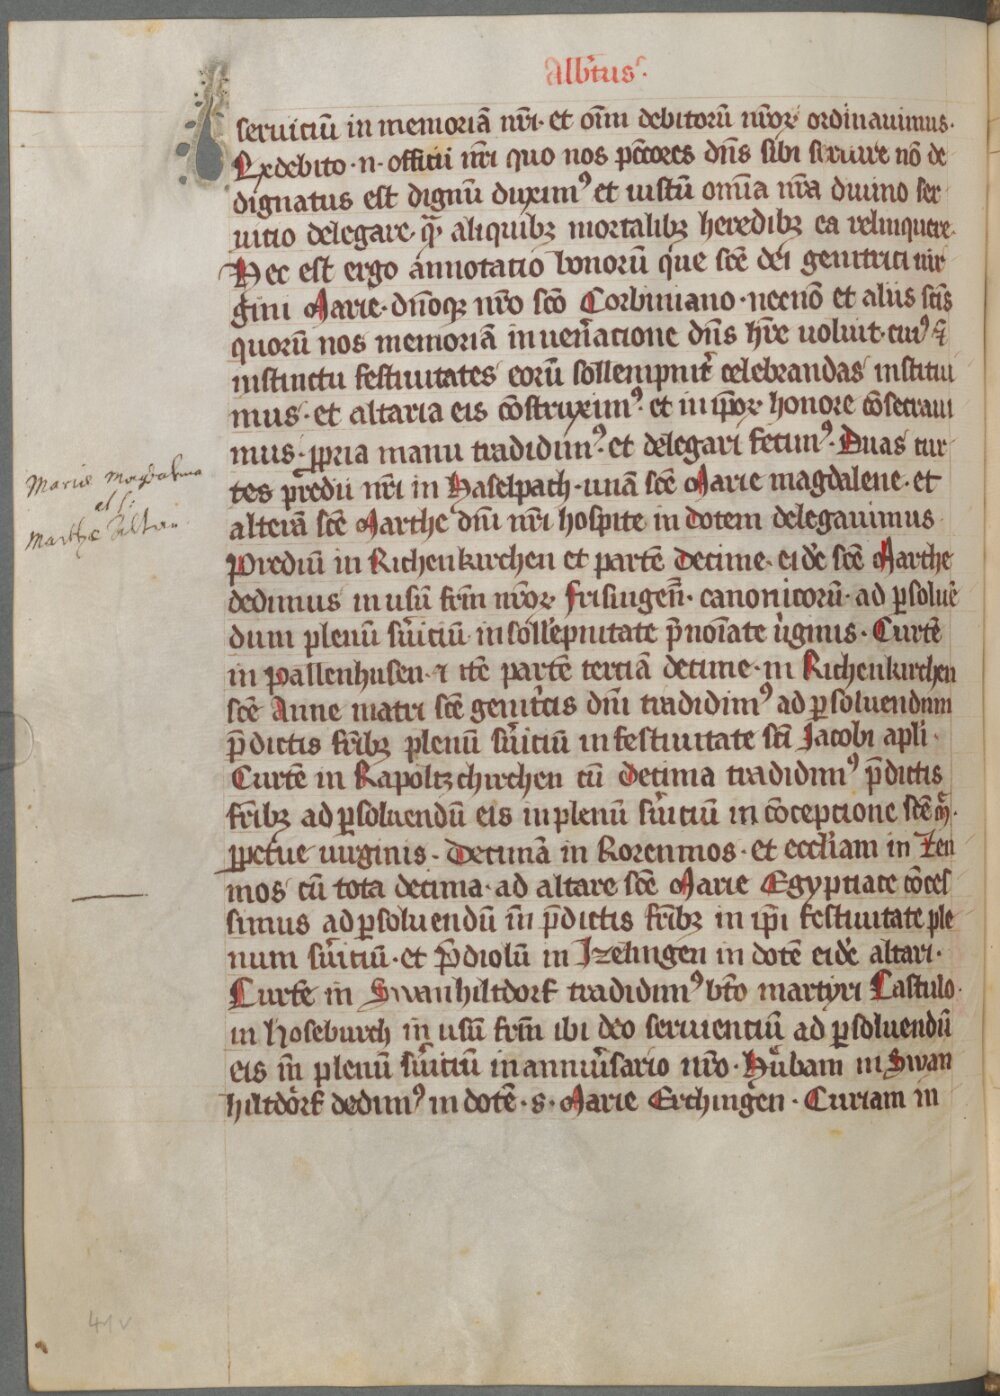 Alb͛tus
seruiciū in memoriā nr̄i· et om̄i debitorū nr̄oꝝ ordinauimus·
Exdebito ·n· officii nr̄i quo nos pctōres dn̄s sibi seruire nō de
dignatus est dignū duximꝰ et iustū omīa nr̄a diuino ser
uitio delegare· qᷓ aliquibꝫ mortalibꝫ heredibꝫ ea relinquere·
Hec est ergo annotatio bonorū que sc̄e dei genitrici uir
gini Marie· dn̄oqꝫ nr̄o sc̄o Corbiniano· necnō et aliis sc̄is
quorū nos memoriā in uen̄acione dn̄s hr̄e uoluit· cuiꝰ
instinctu festiuitates eorū sollempnit͛ celebrandas institui
mus· et altaria eis cōstruximꝰ· et in ip̄oꝝ honore cōsecraui
mus· ꝓpria manu tradidimꝰ· et delegari fecimꝰ· Duas cur
tes predii nr̄i in Haselpach· unā sc̄e Marie magdalene· et
alterā sc̄e Marthe dn̄i nr̄i hospite in dotem delegauimus
Prediū in Richenkirchen et partē decime· eid̄e sc̄e Marthe
dedimus in usū fr̄m nr̄oꝝ frisingen̄· canonicorū· ad ꝑsolue
dum plenū s͛uiciū in soll̄epnitate p̄noīate u͛ginis· Curtē
in pallenhusen· ⁊ itē partē terciā decime· in Richenkirchen
sc̄e Anne matri sc̄e genit͛cis dn̄i tradidimꝰ ad ꝑsoluendum
p̄dictis fr̄ibꝫ plenū s͛uiciū in festiuitate sc̄i Jacobi apl̄i·
Curtē in Rapoltzchirchen cū decima tradidimꝰ p̄dictis
fr̄ibꝫ ad ꝑsoluendū eis in plenū s͛uiciū in cōcepcione sc̄e M͛·
ꝑpetue uirginis· Decimā in Rorenmos· et eccl̄iam in Zen
mos cū tota decima· ad altare sc̄e Marie Egyptiace cōces
simus ad ꝑsoluendū in̄ p̄dictis fr̄ibꝫ in ip̄i festiuitate ple
num s͛uiciū· et p̄diolū in Jzelingen in dotē eid̄e altari·
Curte in Swanhiltdorf tradidimꝰ bt̄o martyri Castulo·
in hoseburch in usū fr̄m ibi deo seruienciū ad ꝑsoluendū
eis in̄ plenū s͛uiciū in anniu͛sario nr̄o· Hůbam in Swan
hiltdorf dedimꝰ in dotē ·s· Marie Erchingen· Curiam in
Mariæ Magdalenæ
et S:
Marthæ Altar
41v